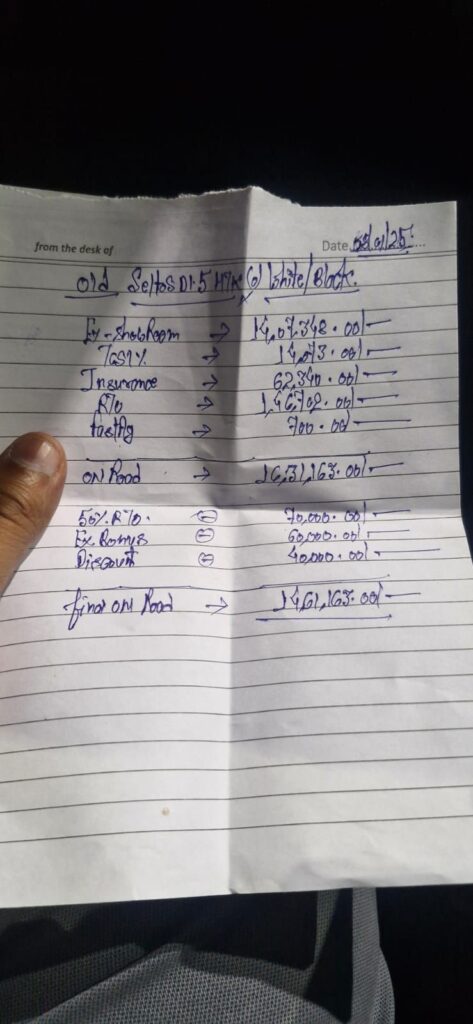 from the desk of
Date
Old Seltos D1.5 HTK (O) White/Black.
Ex-ShowRoom → 14,07,348.00/-
TCS1% → 14,073.00/-
Insurance → 62,340.00/-
R/o → 1,46,702.00/-
fasttag → 700.00/-
ON Road → 16,31,163.00/-
50% R/o. ⊖ 70,000.00/-
Ex. Bonus ⊖ 60,000.00/-
Discount ⊖ 40,000.00/-
final ON Road → 14,61,163.00/-